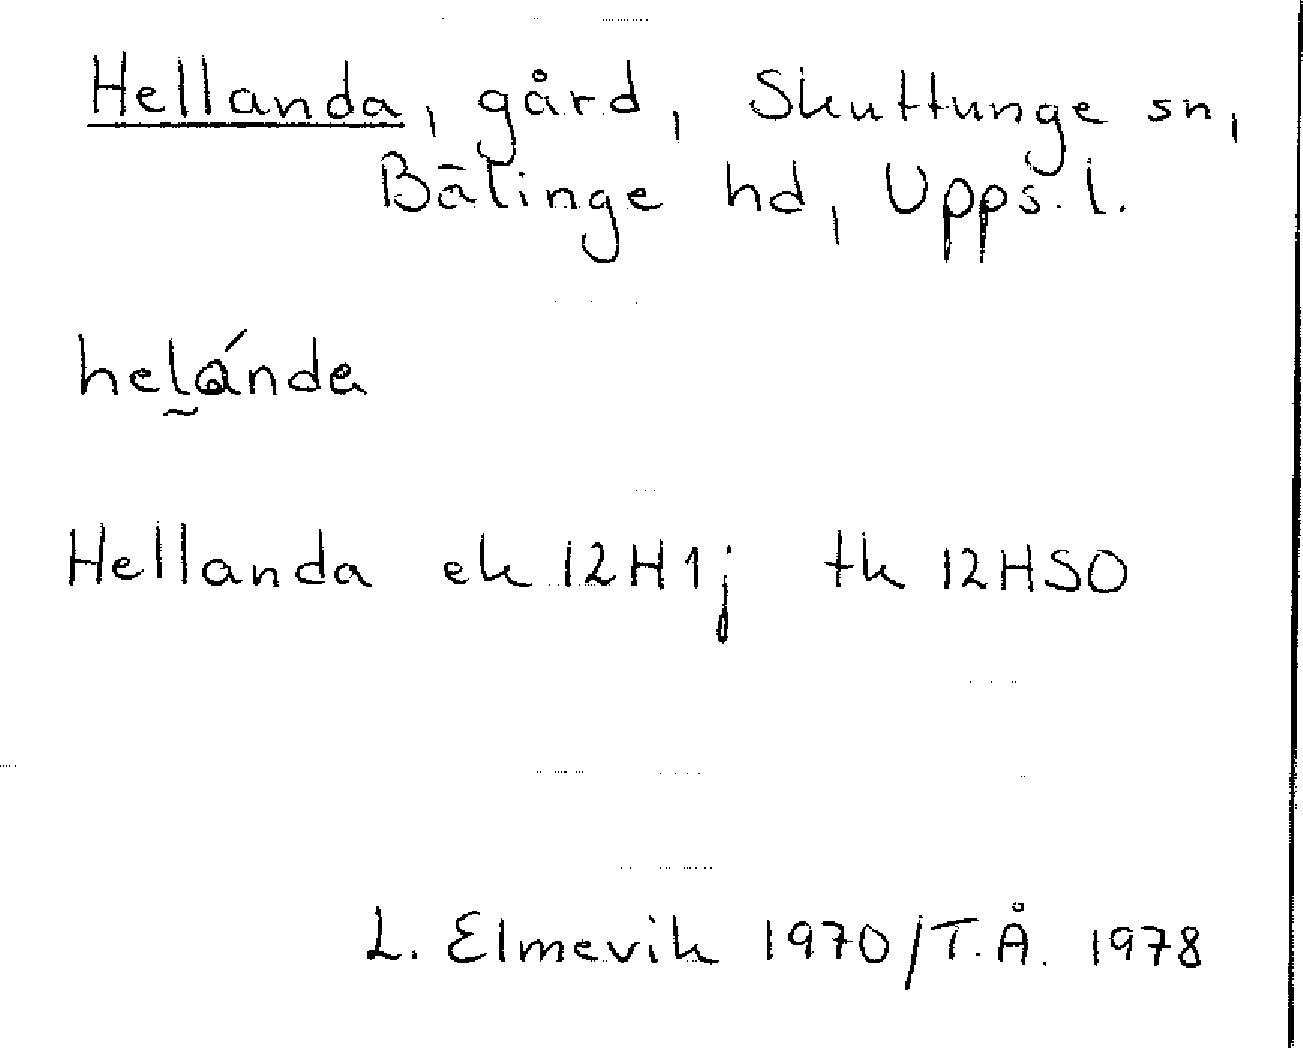 Hellanda, gård, Skuttunge sn,
Bälinge hd, Upps. l.
hel̰ánda
Hellanda ek 12H1j tk 12HSO
L. Elmevik 1970/T.Å. 1978